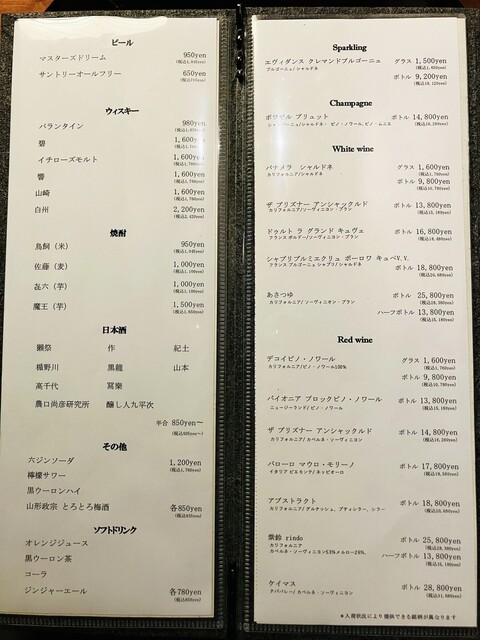 ビール
マスターズドリーム 950yen
(税込1,045yen)
サントリーオールフリー 650yen
(税込715yen)
ウィスキー
バランタイン 980yen
碧 1,600yen
(税込1,760yen)
イチローズモルト 1,600yen
(税込1,760yen)
響 1,600yen
(税込1,760yen)
山崎 1,600yen
(税込1,760yen)
白州 2,200yen
(税込2,420yen)
焼酎
鳥飼（米） 950yen
(税込1,045yen)
佐藤（麦） 1,000yen
(税込1,100yen)
㐂六（芋） 1,000yen
(税込1,100yen)
魔王（芋） 1,500yen
(税込1,650yen)
日本酒
獺祭 作 紀土
楯野川 黒龍 山本
高千代 冩樂
農口尚彦研究所 醸し人九平次
半合 850yen～
(税込935yen～)
その他
六ジンソーダ 1,200yen
檸檬サワー
黒ウーロンハイ
山形政宗 とろとろ梅酒 各850yen
(税込935yen)
ソフトドリンク
オレンジジュース
黒ウーロン茶
コーラ
ジンジャーエール 各780yen
(税込858yen)
Sparkling
エヴィダンス クレマンドブルゴーニュ グラス 1,500yen
ブルゴーニュ/シャルドネ (税込1,650yen)
ボトル 9,200yen
(税込10,120yen)
Champagne
ポワゼル ブリュット ボトル 14,800yen
シャンパーニュ/シャルドネ・ピノ・ノワール、ピノ・ムニエ (税込16,280yen)
White wine
パナメラ シャルドネ グラス 1,600yen
カリフォルニア/シャルドネ (税込1,760yen)
ボトル 9,800yen
(税込10,780yen)
ザ プリズナー アンシャックルド ボトル 13,800yen
カリフォルニア/ソーヴィニヨン・ブラン (税込15,180yen)
ドゥルト ラ グランド キュヴェ ボトル 16,800yen
フランス ボルドー/ソーヴィニヨン・ブラン (税込18,480yen)
シャブリプルミエクリュ ボーロワ キュベV.V.
フランス ブルゴーニュ シャブリ/シャルドネ ボトル 18,800yen
(税込20,680yen)
あさつゆ ボトル 25,800yen
カリフォルニア/ ソーヴィニオン・ブラン (税込28,380yen)
ハーフボトル 13,800yen
(税込15,180yen)
Red wine
デコイピノ・ノワール グラス 1,600yen
カリフォルニア/ピノ・ノワール100% (税込1,760yen)
ボトル 9,800yen
(税込10,780yen)
パイオニア ブロックピノ・ノワール ボトル 13,800yen
ニュージーランド/ピノ・ノワール (税込15,180yen)
ザ プリズナー アンシャックルド ボトル 14,800yen
カリフォルニア/カベルネ・ソーヴィニヨン (税込16,280yen)
バローロ マウロ・モリーノ ボトル 17,800yen
イタリア ピエモンテ/ネッビオーロ (税込19,580yen)
アブストラクト ボトル 18,800yen
カリフォルニア/グルナッシュ、プティシラー、シラー (税込20,680yen)
紫鈴 rindo ボトル 25,800yen
カリフォルニア (税込28,380yen)
カベルネ・ソーヴィニヨン53%メルロー26%、 ハーフボトル 13,800yen
(税込15,180yen)
ケイマス ボトル 28,800yen
ナパバレー/ カベルネ・ソーヴィニヨン (税込31,680yen)
＊入荷状況により提供できる銘柄が異なります